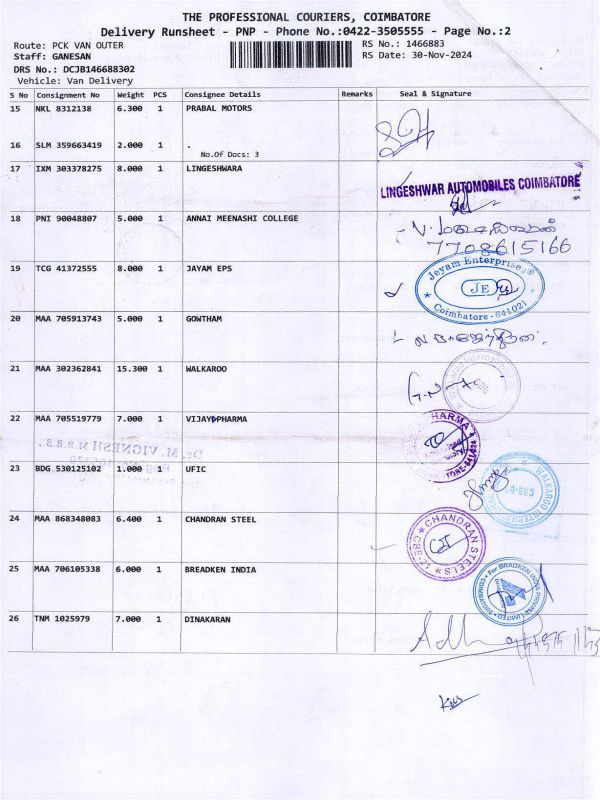 THE PROFESSIONAL COURIERS, COIMBATORE
Delivery Runsheet - PNP - Phone No.:0422-3505555 - Page No.:2
Route: PCK VAN OUTER
RS No.: 1466883
Staff: GANESAN
RS Date: 30-Nov-2024
DRS No.: DCJB146688302
Vehicle: Van Delivery
S No Consignment No Weight PCS Consignee Details Remarks Seal & Signature
15 NKL 8312138 6.300 1 PRABAL MOTORS
16 SLM 359663419 2.000 1 .
No.Of Docs: 3
17 IXM 303378275 8.000 1 LINGESHWARA
LINGESHWAR AUTOMOBILES COIMBATORE
18 PNI 90048807 5.000 1 ANNAI MEENASHI COLLEGE
7708615166
19 TCG 41372555 8.000 1 JAYAM EPS
Jeyam Enterprises
JE
Coimbatore-641021
20 MAA 705913743 5.000 1 GOWTHAM
21 MAA 302362841 15.300 1 WALKAROO
22 MAA 705519779 7.000 1 VIJAY PHARMA
Dr. M. VIGNESH M.B.B.S.,
23 BDG 530125102 1.000 1 UFIC
24 MAA 868348083 6.400 1 CHANDRAN STEEL
CHANDRAN STEELS
25 MAA 706105338 6.000 1 BREADKEN INDIA
26 TNM 1025979 7.000 1 DINAKARAN